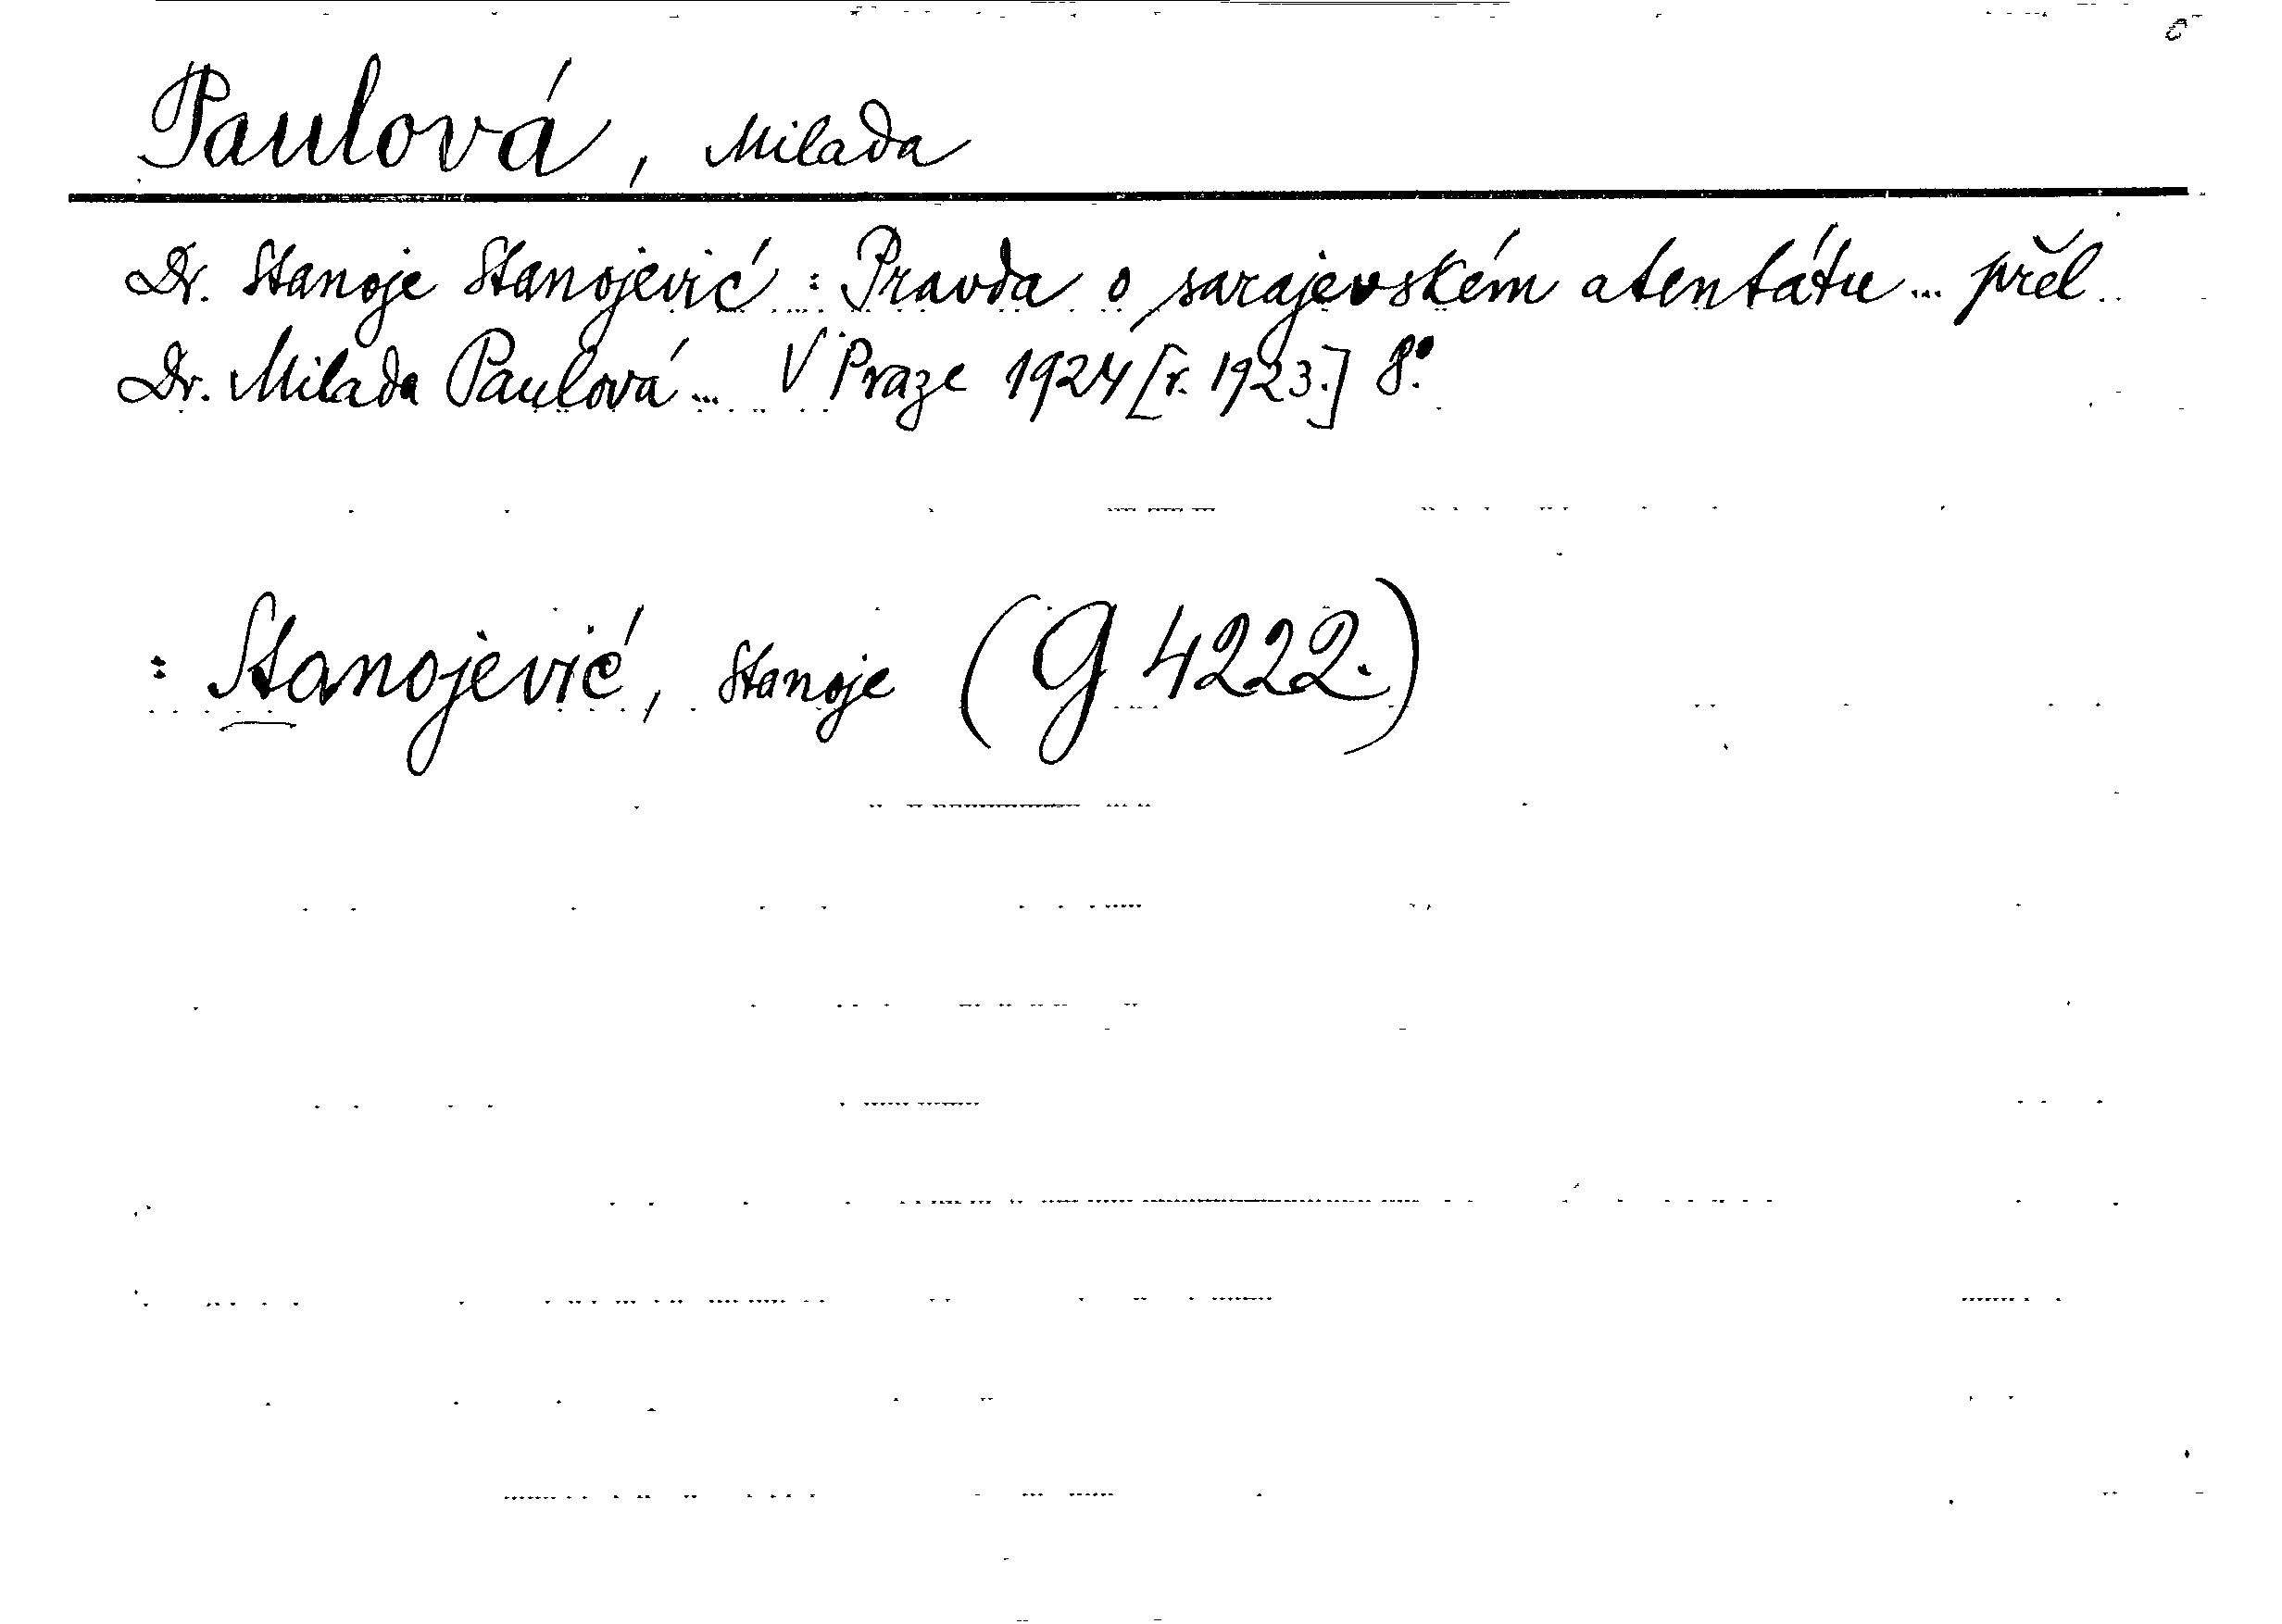 Paulová, Milada
Dr. Stanoje Stanojević : Pravda o sarajevském atentátu ... přel.
Dr. Milada Paulová ... V Praze 1924 [r. 1923.] 8°.
: Stanojević, Stanoje (G 4222.)